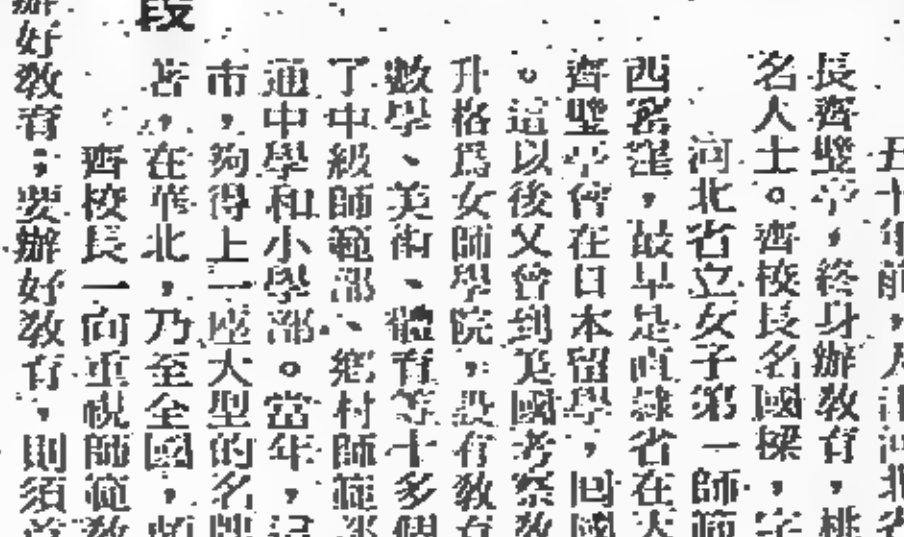 五十年前，天津河北省
長齊璧亭，終身辦敎育，桃
名人士。齊校長名國樑，字
河北省立女子第一師範
西窰窪，最早是直隸省在天
齊璧亭曾在日本留學，回國
。這以後又曾到美國考察敎
升格爲女師學院，設有敎育
數學、美術、體育等十多個
了中級師範部、鄉村師範部
通中學和小學部。當年，記
市，夠得上一座大型的名牌
害，在華北，乃至全國，頗
齊校長一向重視師範敎
辦好敎育；要辦好敎育，則須首
段